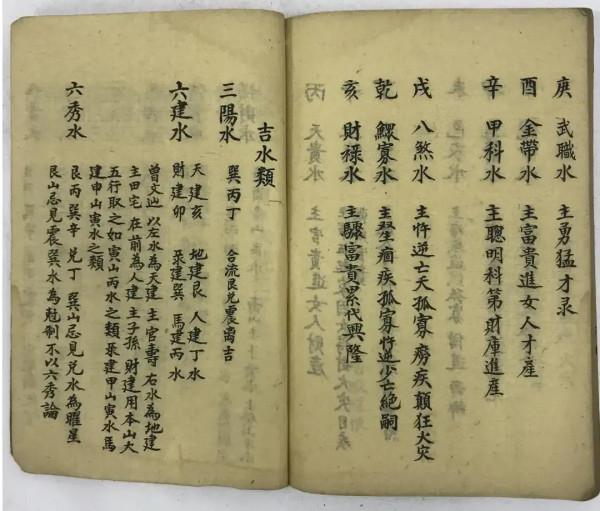 庚 武職水 主勇猛才录
酉 金帶水 主富貴進女人才產
辛 甲科水 主聰明科第財庫進產
戌 八煞水 主忤逆亡夭孤寡癆疾顛狂火灾
乾 鰥寡水 主瞖痼疾孤寡忤逆少亡絶嗣
亥 財禄水 主驟富貴累代興隆
吉水類
三陽水 巽丙丁 合流艮兌震离吉
六建水 天建亥 地建艮 人建丁水
財建卯 录建巽 馬建丙水
曾文辿以左水為天建主官壽右水為地建
主田宅在前為人建主子孫財建用本山大
五行取之如寅山丙水之類录建甲山寅水馬
建申山寅水之類
六秀水 艮丙巽辛兌丁 巽山忌見兌水為曜星
艮山忌見震巽水為尅制不以六秀論